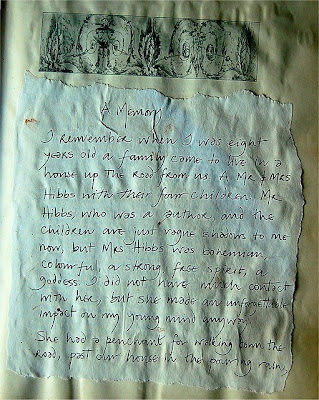 A Memory
I remember when I was eight
years old a family came to live in a
house up the road from us. A Mr & Mrs
Hibbs with their four children. Mr
Hibbs, who was a author, and the
children are just vague shadows to me
now, but Mrs Hibbs was bohemian
colourful, a strong free spirit, a
goddess. I did not have much contact
with her, but she made an unforgettable
impact on my young mind anyway.
She had a penchant for walking down the
road, past our house in the pouring rain,